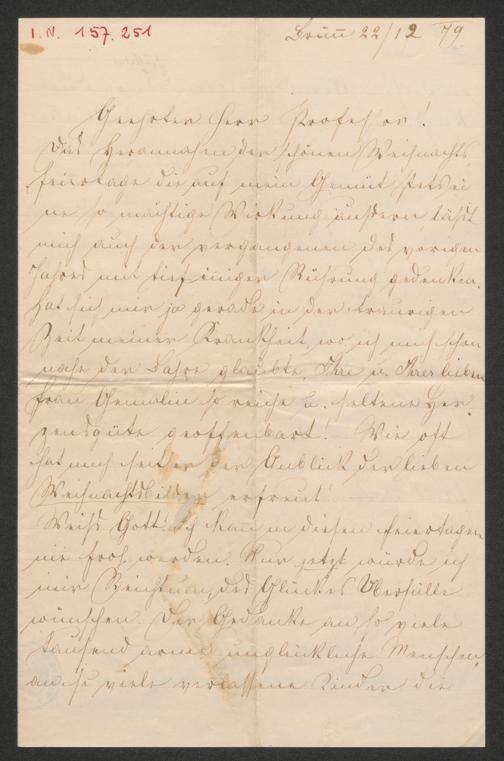 I.N. 157.251
Brünn 22/12 79
Geehrter Herr Professor!
Das Herannahen der schönen Weihnachts
feiertage die auf mein Gemüt stets ei
ne so mächtige Wirkung äußern läßt
mich auch der vergangenen des vorigen
Jahres mit tief inniger Rührung gedenken.
Hat sich mir ja gerade in der traurigen
Zeit meiner Krankheit, wo ich mich schon
nahe der Bahre glaubte, Ihre u. Ihrer lieben
Frau Gemalin so reiche u. seltene Her
zensgüte geoffenbart! Wie oft
hat mich seither der Anblick der lieben
Weihnachtsbilder erfreut!
Weiß Gott! Ich kann in diesen Feiertagen
nie froh werden. Nur jetzt würde ich
mir des Glückes Überfülle
wünschen. Der Gedanke an so viele
tausend arme unglückliche Menschen,
an so viele verlassene Kinder die